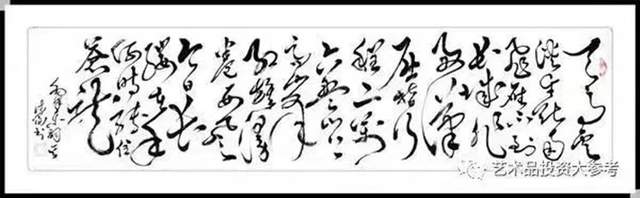 天高雲
淡望断南
飞雁不到
长城非
好汉
屈指行
程二萬
六盘山上
高峰
红旗漫
卷西风
今日长
缨在手
何时缚住
苍龙
毛泽东词
艺术品投资大参考